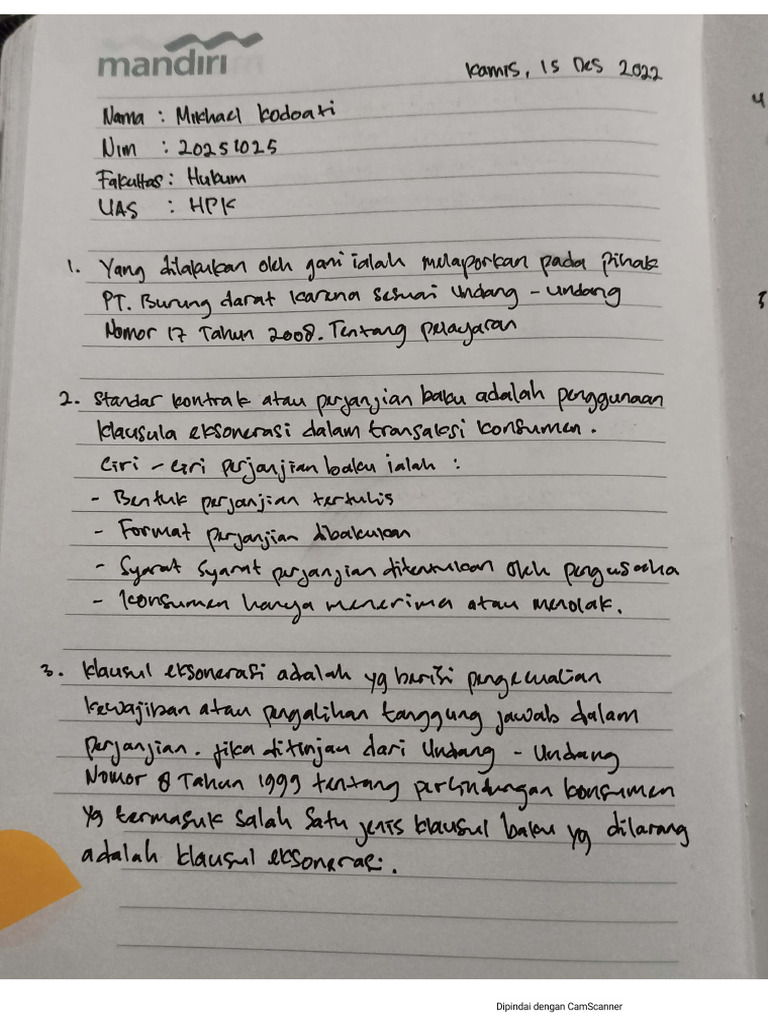 mandiri
Kamis, 15 Des 2022
Nama : Mikhael Kodoati
Nim : 20251025
Fakultas : Hukum
UAS : HPK
1. Yang dilakukan oleh gani ialah melaporkan pada pihak
PT. Burung darat karena sesuai Undang - undang
Nomor 17 Tahun 2008. Tentang pelayaran
2. Standar kontrak atau perjanjian baku adalah penggunaan
klausula eksonerasi dalam transaksi konsumen.
Ciri - ciri perjanjian baku ialah :
- Bentuk perjanjian tertulis
- Format perjanjian dibakukan
- Syarat syarat perjanjian ditentukan oleh pengusaha
- Konsumen hanya menerima atau menolak.
3. klausul eksonerasi adalah yg berisi pengecualian
kewajiban atau pengalihan tanggung jawab dalam
perjanjian. jika ditinjau dari Undang - Undang
Nomor 8 Tahun 1999 tentang perlindungan konsumen
yg termasuk salah satu jenis klausul baku yg dilarang
adalah klausul eksonerasi.
4
5
Dipindai dengan CamScanner